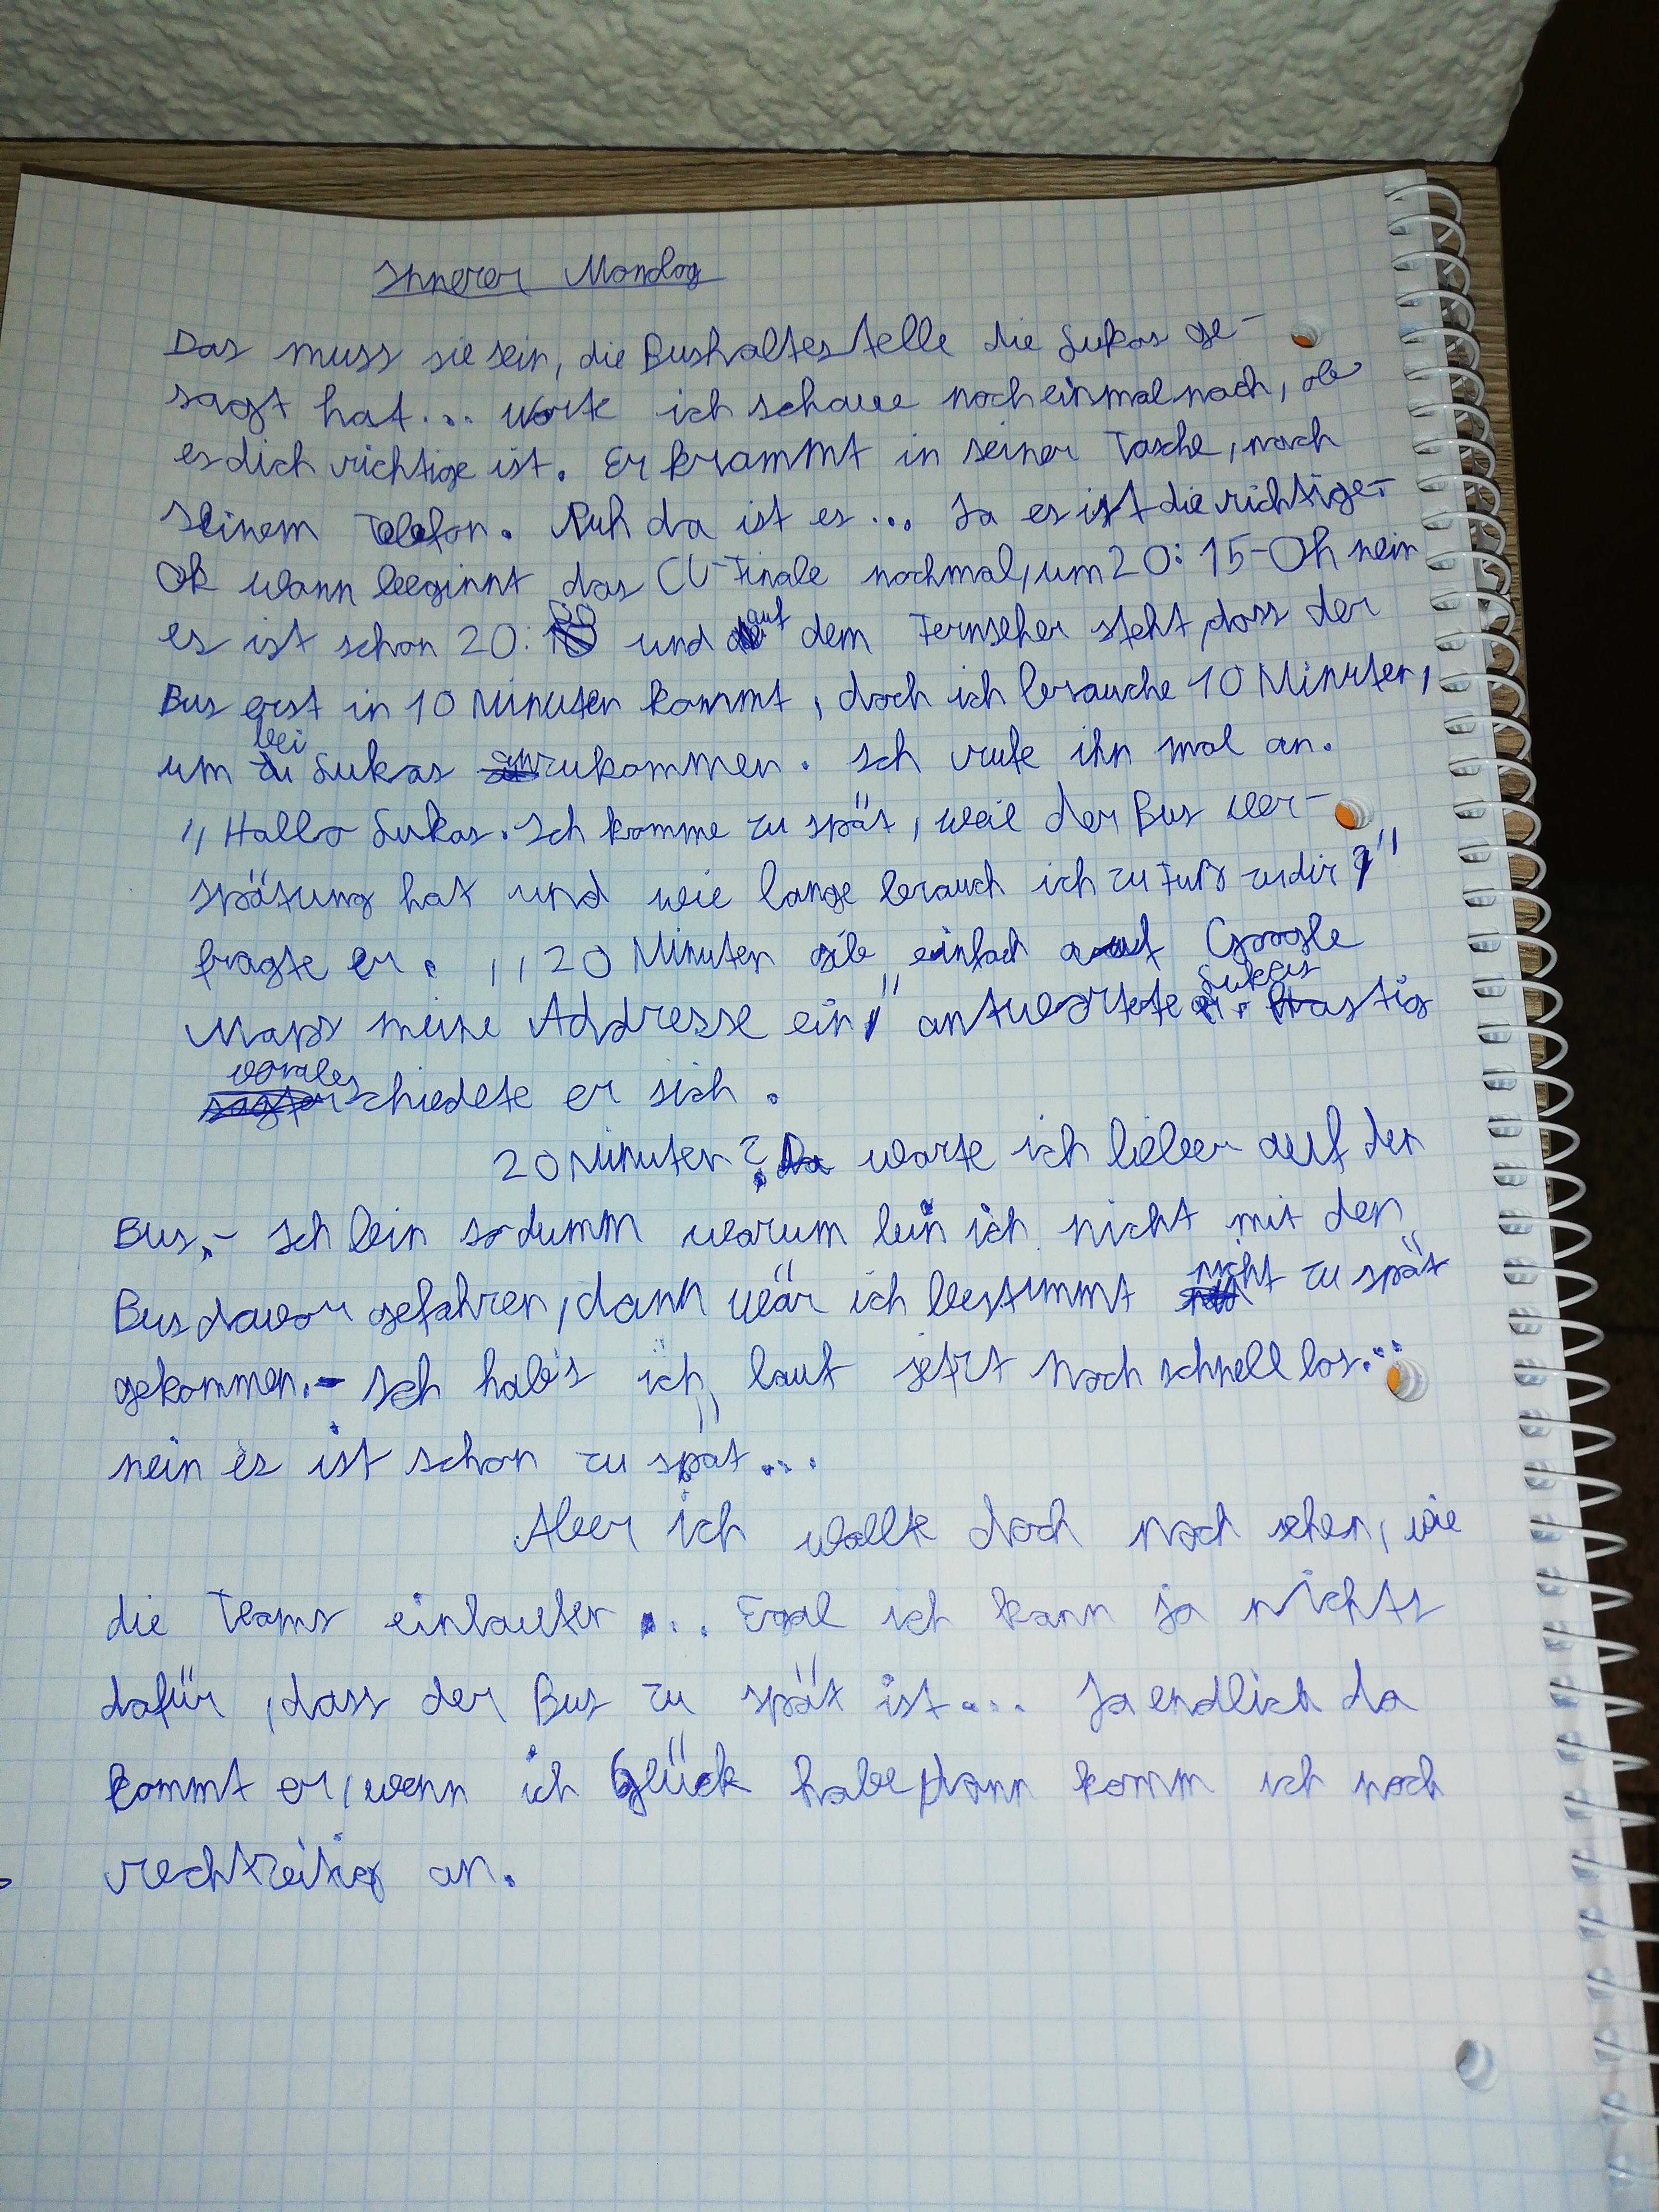 Innerer Monolog
Das muss sie sein, die Bushaltestelle die Lukas ge-
sagt hat... warte ich schaue noch einmal nach, ob
es dich richtige ist. Er krammt in seiner Tasche, nach
seinem Telefon. Puh da ist es... Ja es ist die richtige.-
Ok wann beginnt das CL-Finale nochmal, um 20:15-Oh nein
es ist schon 20:00 und auf dem Fernseher steht, dass der
Bus erst in 10 Minuten kommt, doch ich brauche 10 Minuten,
um bei Lukas anzukommen. Ich rufe ihn mal an.
„Hallo Lukas. Ich komme zu spät, weil der Bus ver-
spätung hat und wie lange brauch ich zu Fuß zu dir?"
fragte er. „20 Minuten gib einfach auf Google
Maps meine Addresse ein," antwortete Lukas. Hastig
verabschiedete er sich.
20 Minuten? Da warte ich lieber auf den
Bus.- Ich bin so dumm warum bin ich nicht mit den
Bus davor gefahren, dann wär ich bestimmt nicht zu spät
gekommen.- Ich hab's ich lauf jetzt noch schnell los...
nein es ist schon zu spät...
Aber ich wollte doch noch sehen, wie
die Teams einlaufen... Egal ich kann ja nichts
dafür, dass der Bus zu spät ist... Ja endlich da
kommt er, wenn ich Glück habe, dann komm ich noch
rechtzeitig an.